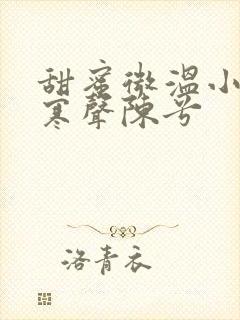 甜蜜微温小
寒声陈兮
洛青衣